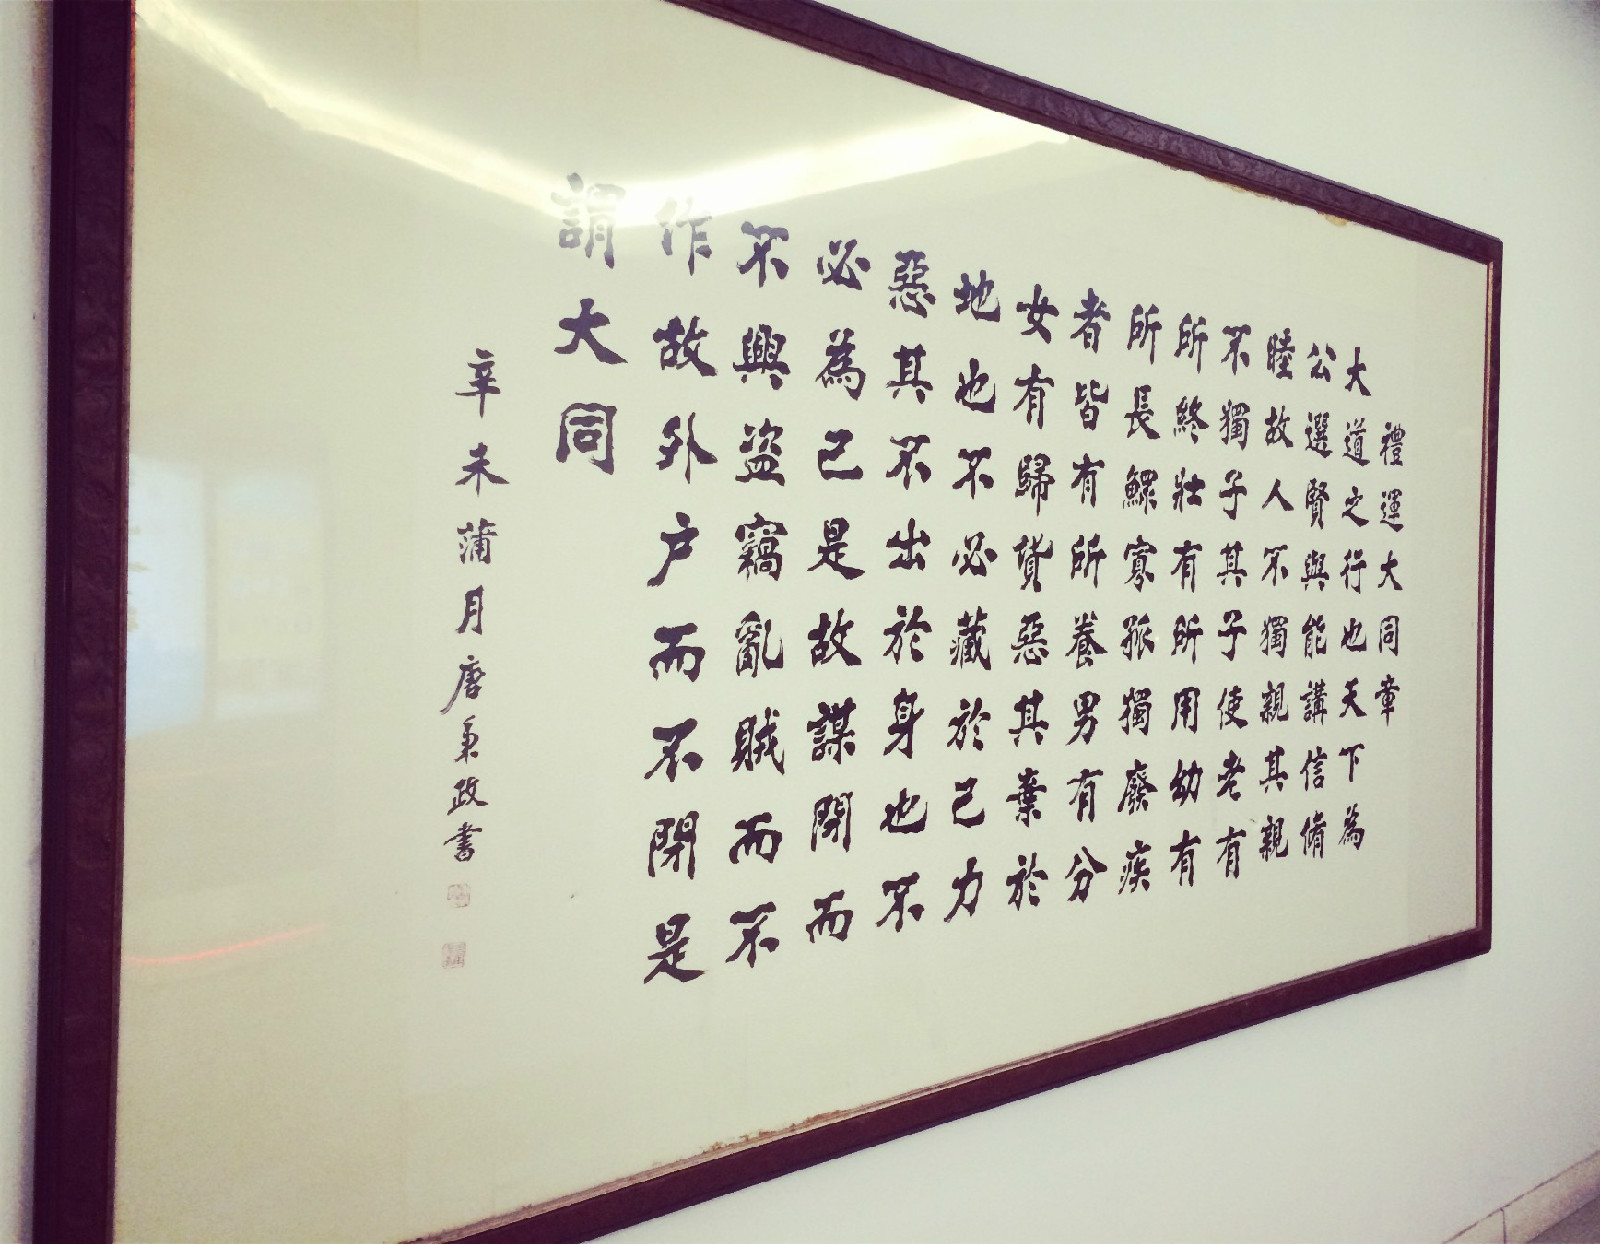 禮運大同章
大道之行也天下為
公選賢與能講信脩
睦故人不獨親其親
不獨子其子使老有
所終壯有所用幼有
所長鰥寡孤獨廢疾
者皆有所養男有分
女有歸貨惡其棄於
地也不必藏於己力
惡其不出於身也不
必為己是故謀閉而
不興盜竊亂賊而不
作故外户而不閉是
謂大同
辛未蒲月唐秉政書